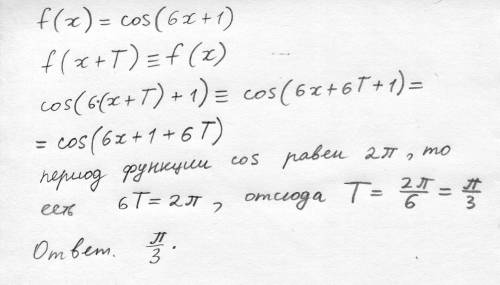 f(x) = cos(6x+1)
f(x+T) ≡ f(x)
cos(6·(x+T)+1) ≡ cos(6x+6T+1) =
= cos(6x+1+6T)
период функции cos равен 2π, то
есть 6T = 2π, отсюда T = 2π/6 = π/3
Ответ. π/3.